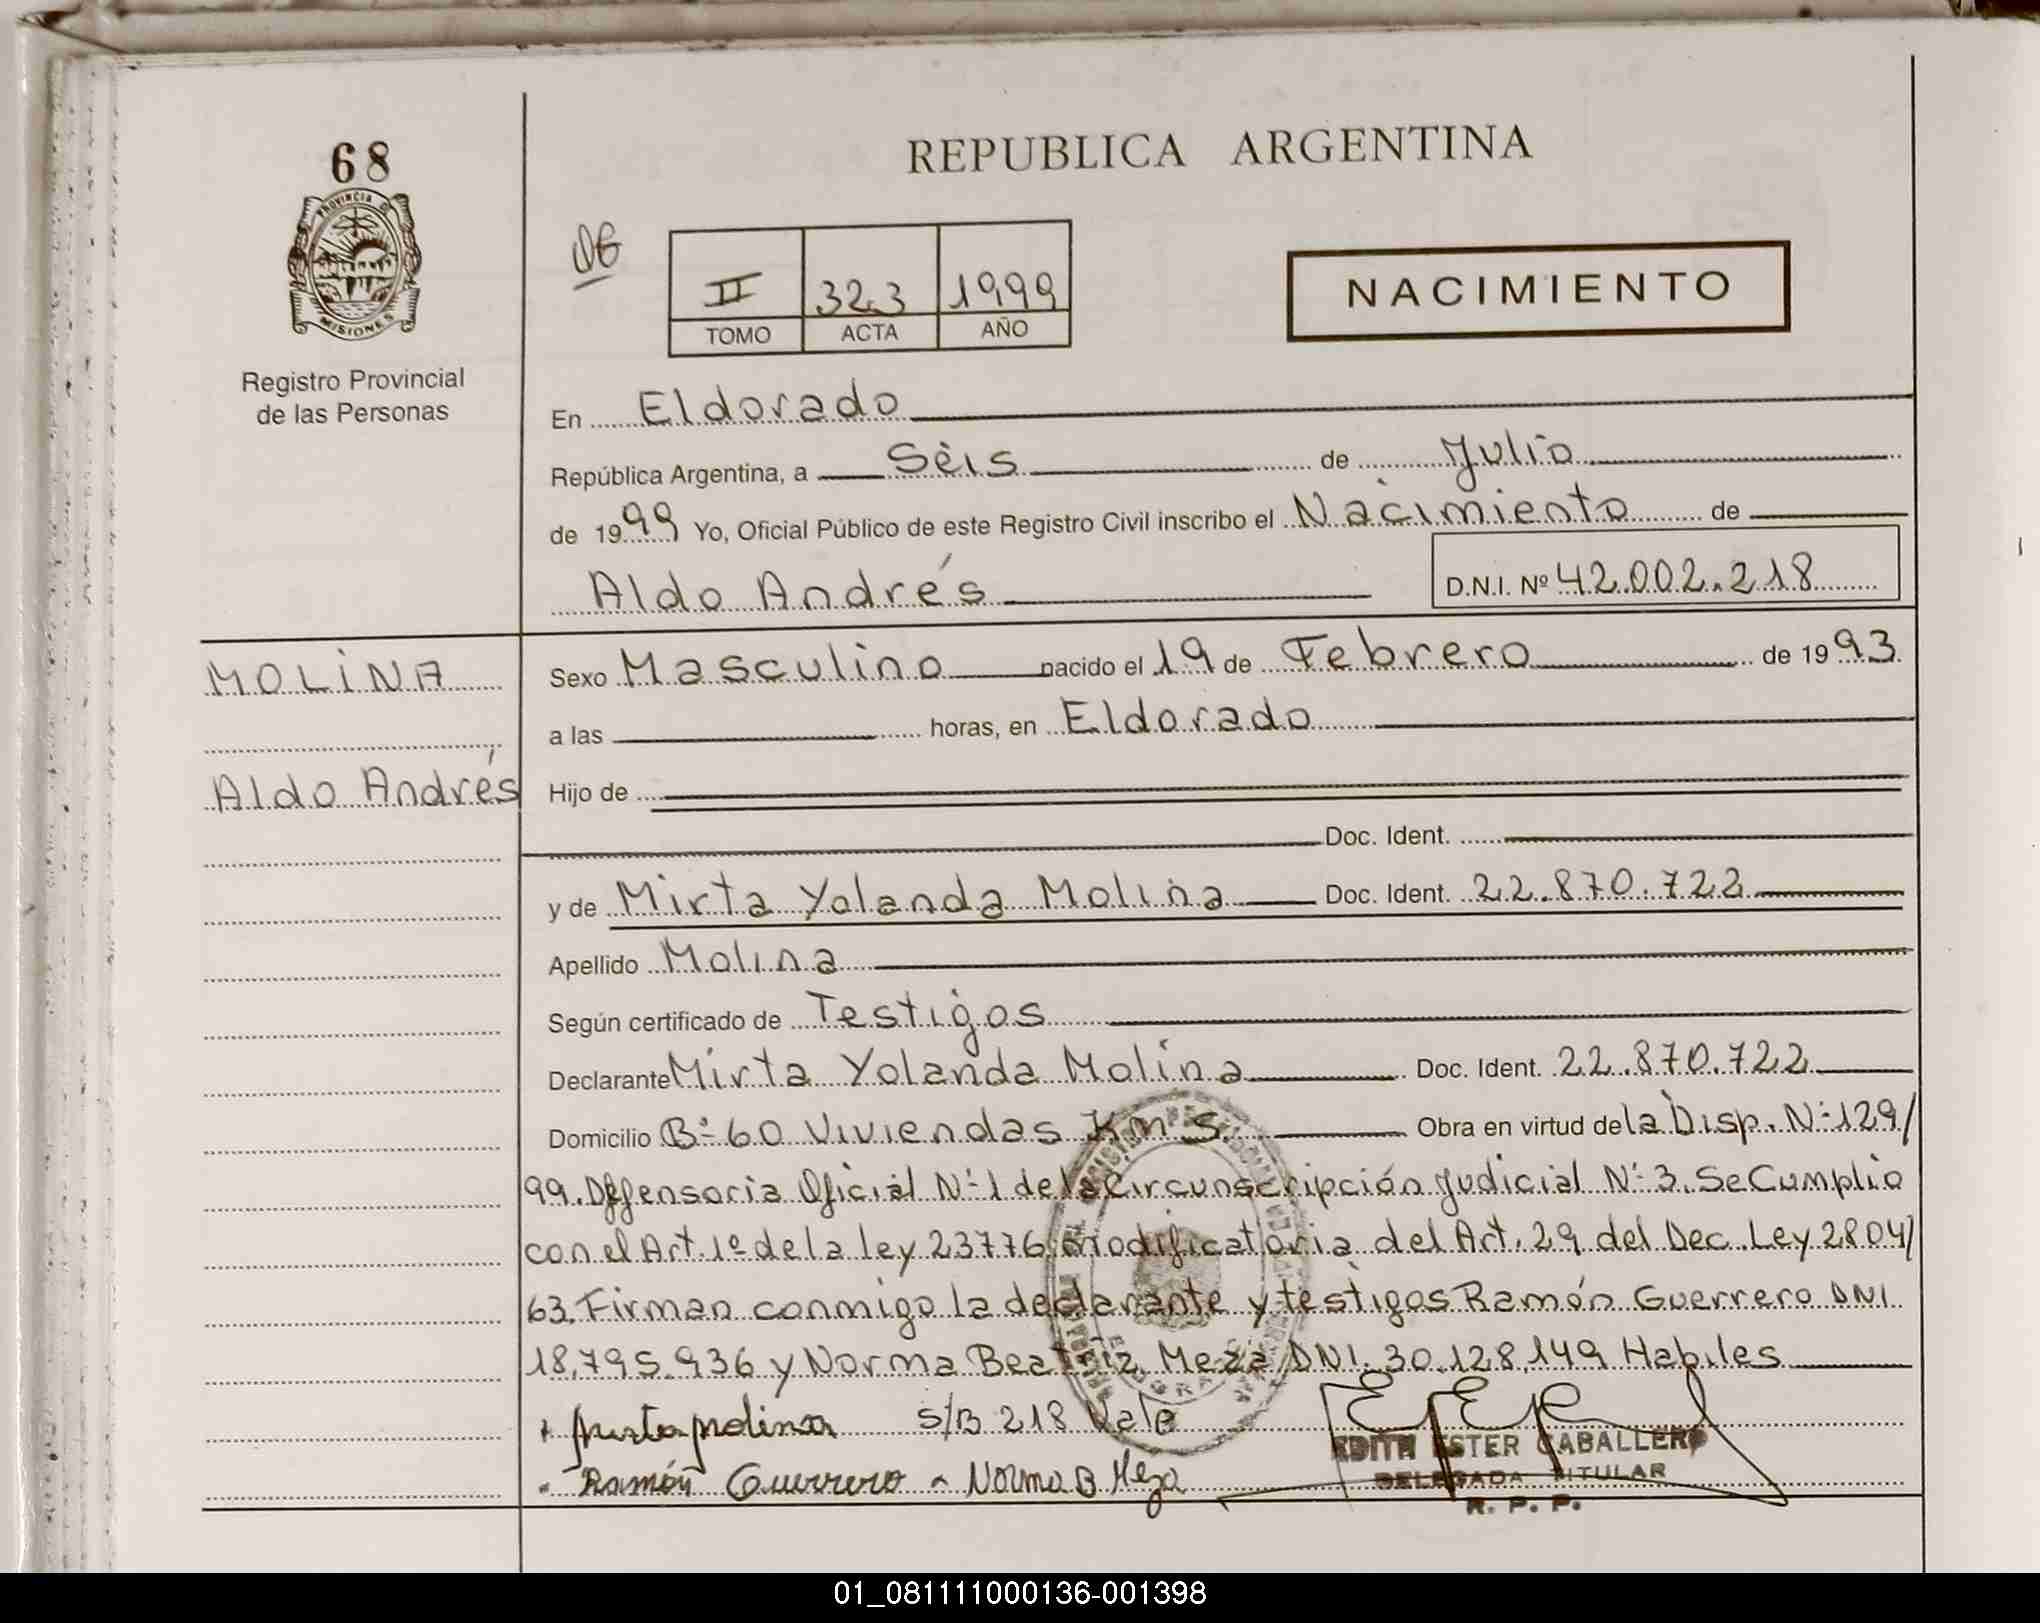 68
PROVINCIA D
MISIONES
Registro Provincial
de las Personas
REPUBLICA ARGENTINA
II 323 1999
TOMO ACTA AÑO
NACIMIENTO
En Eldorado
República Argentina, a Seis de Julio
de 1999 Yo, Oficial Público de este Registro Civil inscribo el Nacimiento de
Aldo Andrés D.N.I. Nº 42.002.218
MOLINA
Aldo Andrés
Sexo Masculino nacido el 19 de Febrero de 1993
a las horas, en Eldorado
Hijo de
Doc. Ident.
y de Mirta Yolanda Molina Doc. Ident. 22.870.722
Apellido Molina
Según certificado de Testigos
Declarante Mirta Yolanda Molina Doc. Ident. 22.870.722
Domicilio Bº 60 Viviendas Km Obra en virtud de la Disp. Nº 129/
99. Deffensoria Oficial Nº 1 de la Circunscripción Judicial Nº 3. Se Cumplio
con el Art. 1º de la ley 23776 modificatoria del Art. 29 del Dec. Ley 2804/
63. Firman conmigo la declarante y testigos Ramón Guerrero DNI
18.795.936 y Norma Beatriz Meza DNI. 30.128.149 Habiles
Mirta molina S/B 218 Vale
Ramón Guerrero - Norma B Meza
EDITH ESTER CABALLERO
DELEGADA TITULAR
R. P. P.
01_081111000136-001398